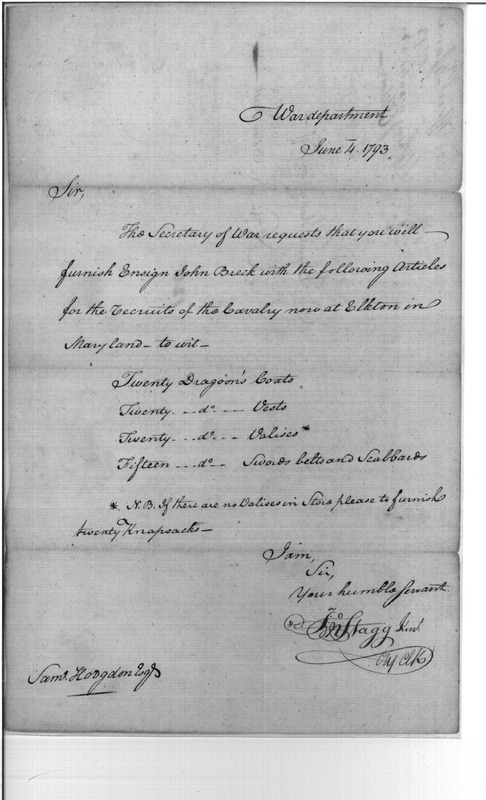 War department
June 4. 1793.
Sir,
The Secretary of War requests that you will
furnish Ensign John Breck with the following Articles
for the Recruits of the Cavalry now at Elkton in
Maryland - to wit -
Twenty Dragoon's Coats
Twenty - - do - - Vests
Twenty - - do - - Valises*
Fifteen - - do - - Swords belts and Scabbards
* N.B. If there are no Valises in Store please to furnish
twenty Knapsacks -
I am,
Sir,
Your humble Servant.
Jno Stagg Junr.
Saml. Hodgdon Esqr